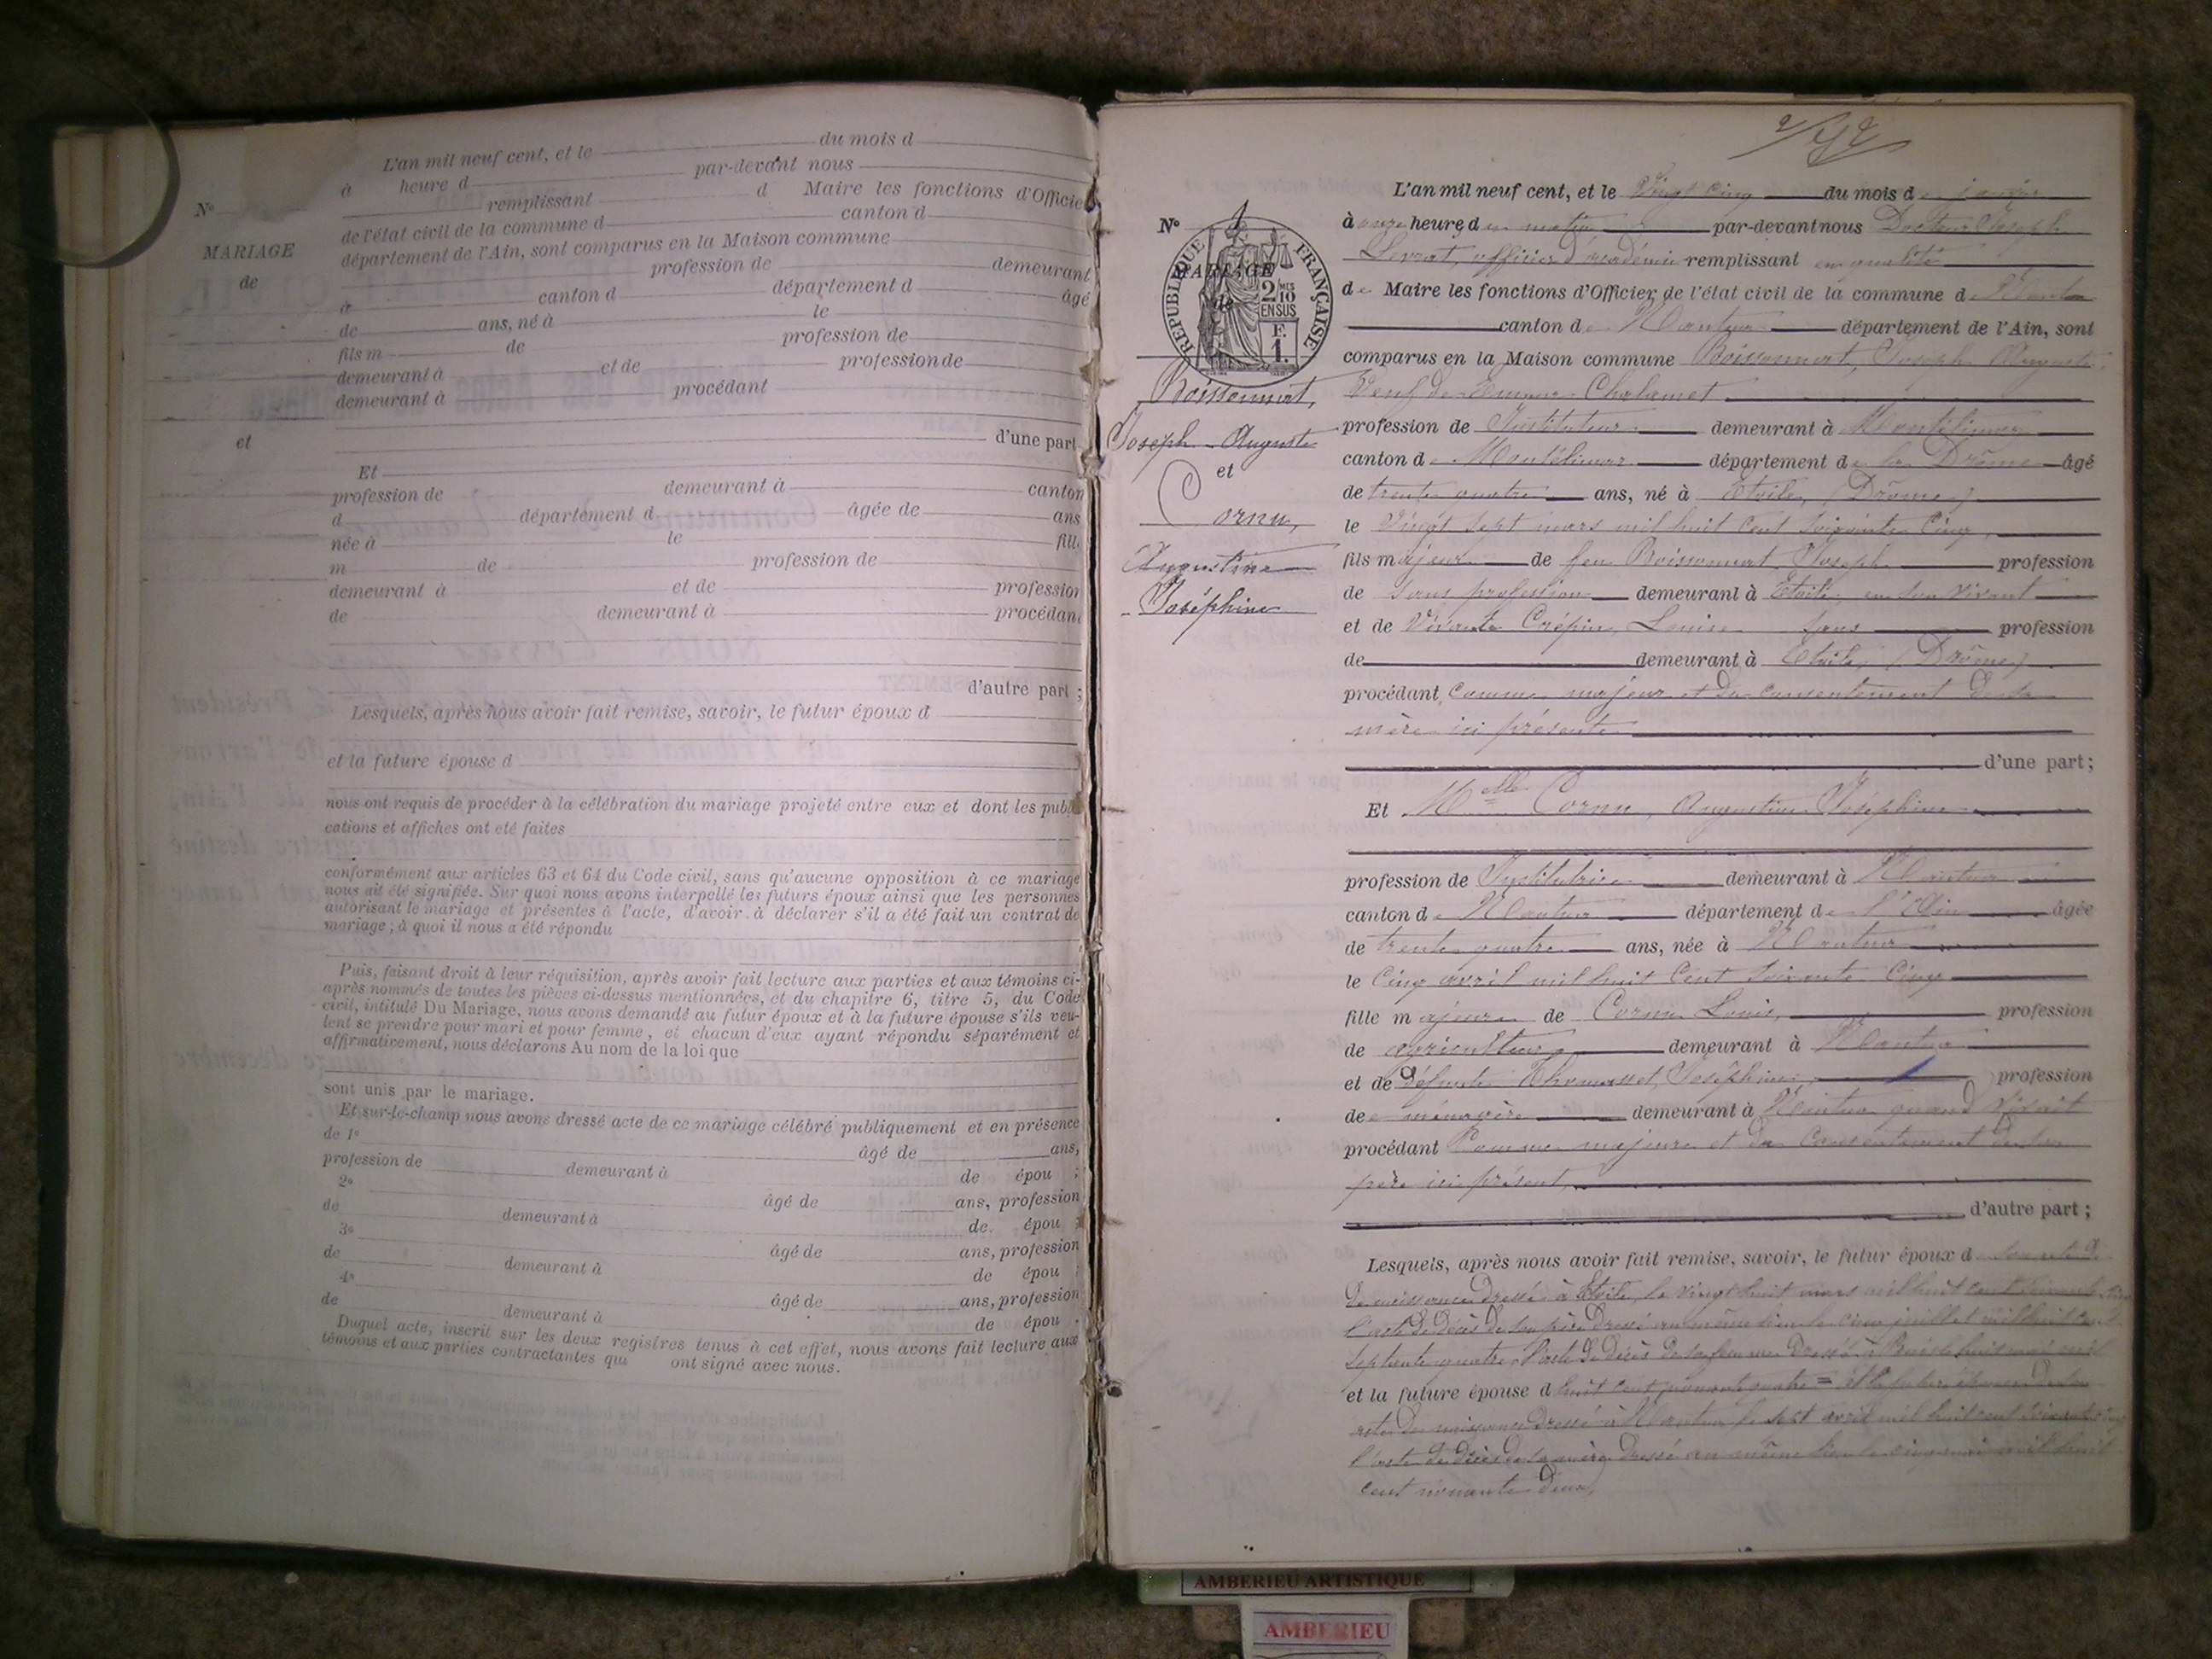 L'an mil neuf cent, et le du mois d
à heure d par-devant nous
remplissant d Maire les fonctions d'Officie
de l'état civil de la commune d canton d
département de l'Ain, sont comparus en la Maison commune
profession de demeurant
à canton d département d âgé
de ans, né à le
fils m de profession de
demeurant à et de profession de
demeurant à procédant
d'une part
Et
profession de demeurant à canton
d département d âgée de ans
née à le fill
m de profession de
demeurant à et de profession
de demeurant à procédan
d'autre part ;
Lesquels, après nous avoir fait remise, savoir, le futur époux d
et la future épouse d
nous ont requis de procéder à la célébration du mariage projeté entre eux et dont les publi
cations et affiches ont été faites
conformément aux articles 63 et 64 du Code civil, sans qu'aucune opposition à ce mariage
nous ait été signifiée. Sur quoi nous avons interpellé les futurs époux ainsi que les personnes
autorisant le mariage et présentes à l'acte, d'avoir à déclarer s'il a été fait un contrat de
mariage ; à quoi il nous a été répondu
Puis, faisant droit à leur réquisition, après avoir fait lecture aux parties et aux témoins ci-
après nommés de toutes les pièces ci-dessus mentionnées, et du chapitre 6, titre 5, du Code
civil, intitulé Du Mariage, nous avons demandé au futur époux et à la future épouse s'ils veu-
lent se prendre pour mari et pour femme, et chacun d'eux ayant répondu séparément et
affirmativement, nous déclarons Au nom de la loi que
sont unis par le mariage.
Et sur-le-champ nous avons dressé acte de ce mariage célébré publiquement et en présence
de 1° âgé de ans,
profession de demeurant à de épou ;
2° âgé de ans, profession
de demeurant à de épou ;
3° âgé de ans, profession
de demeurant à de épou ;
4° âgé de ans, profession
de demeurant à de épou .
Duquel acte, inscrit sur les deux registres tenus à cet effet, nous avons fait lecture aux
témoins et aux parties contractantes qui ont signé avec nous.
N°
MARIAGE
de
et
N° 1
MARIAGE
de
RÉPUBLIQUE FRANÇAISE
2/10 MES
EN SUS
F.
1.
Boissonnat,
Joseph Auguste
et
Cornu,
Augustine
Joséphine
L'an mil neuf cent, et le Vingt cinq du mois de janvier
à onze heure du matin par-devant nous Docteur Joseph
Levrat, officier d'académie remplissant en qualité
de Maire les fonctions d'Officier de l'état civil de la commune de Nantua
canton de Nantua département de l'Ain, sont
comparus en la Maison commune Boissonnat, Joseph Auguste,
Veuf de Emma Chalamet
profession de Instituteur demeurant à Montélimar
canton de Montélimar département de la Drôme âgé
de trente quatre ans, né à Etoile, (Drôme)
le Vingt sept mars mil huit cent soixante cinq,
fils majeur de feu Boissonnat Joseph profession
de sans profession demeurant à Etoile, en son vivant
et de Vivante Crépin, Louise sans profession
de demeurant à Etoile, (Drôme)
procédant comme majeur et du consentement de sa
mère ici présente
d'une part ;
Et Melle Cornu, Augustine Joséphine
profession de Institutrice demeurant à Nantua
canton de Nantua département de l'Ain âgée
de trente quatre ans, née à Nantua
le cinq avril mil huit cent soixante cinq
fille majeure de Cornu Louis, profession
de agriculteur demeurant à Nantua
et de défunte Thomasset, Joséphine, profession
de ménagère demeurant à Nantua quand vivait
procédant Comme majeure et du consentement de son
père ici présent,
d'autre part ;
Lesquels, après nous avoir fait remise, savoir, le futur époux de son acte
de naissance dressé à Etoile, le vingt huit mars mil huit cent soixante
l'acte de décès de son père dressé au même lieu le cinq juillet mil huit cent
septante quatre, l'acte de décès de sa femme dressé à
et la future épouse d huit cent nonante quatre = et la future épouse de son
acte de naissance dressé à Nantua le sept avril mil huit cent soixante
l'acte de décès de sa mère dressé au même lieu le cinq mil huit
cent nonante deux,
AMBERIEU ARTISTIQUE
AMBERIEU